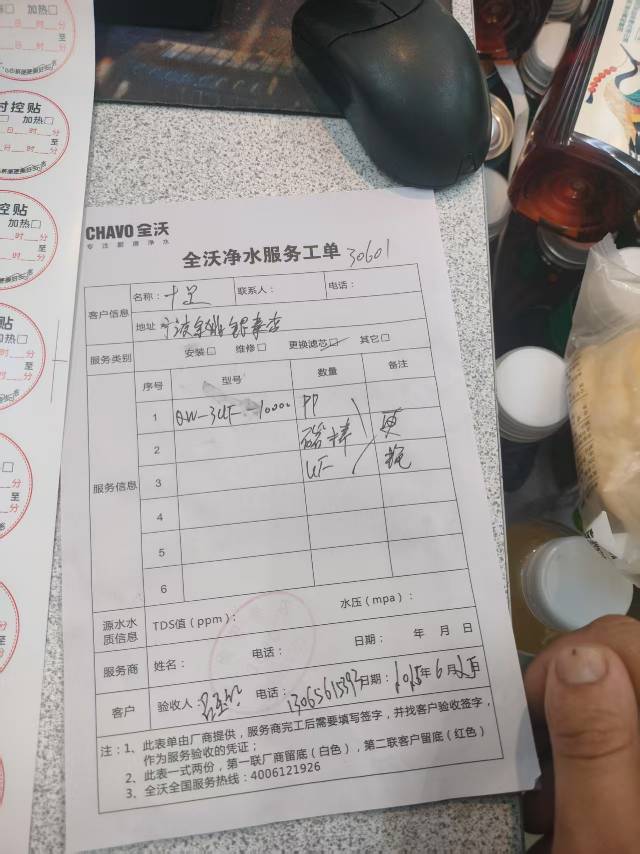 CHAVO 全沃
专注厨房净水
全沃净水服务工单 30601
客户信息 名称: 十足 联系人: 电话:
地址
服务类别 安装□ 维修□ 更换滤芯☑ 其它□
服务信息 序号 型号 数量 备注
1 QW-3UF-1000 PP
2 更
3 UF 瓶
4
5
6
源水水质信息 TDS值(ppm): 水压(mpa):
服务商 姓名: 电话: 日期: 年 月 日
客户 验收人: 电话: 13065615393 日期: 2025年6月25日
注:1、此表单由厂商提供,服务商完工后需要填写签字,并找客户验收签字,
作为服务验收的凭证;
2、此表一式两份,第一联厂商留底(白色),第二联客户留底(红色)
3、全沃全国服务热线:4006121926
加热□
日 时 分
至
时控贴
加热□
日 时 分
至
控贴
加热□
时 分
至
贴
加热□
时 分
至